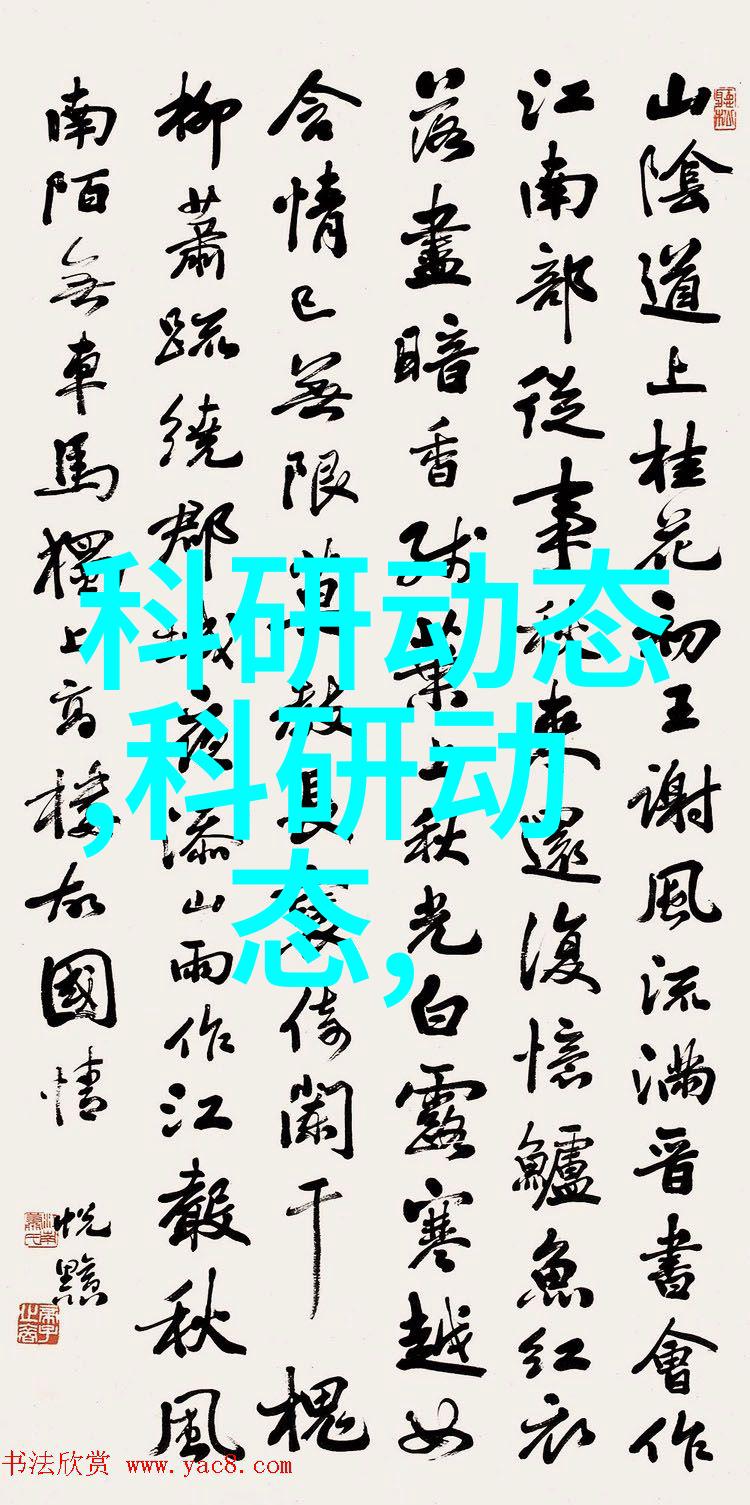 山陰道上桂花初王謝風流滿晉書會作
江南部從事秋來還復憶鱸魚紅衣
落盡暗香殘葉上秋光白露寒越女
含情已無限莫教長袖倚闌干槐
柳蕭疏繞郡城夜添山雨作江聲秋風
南陌無車馬獨上高樓故國情
科研动态
,科研动
态,
书法欣赏 www.yac8.com